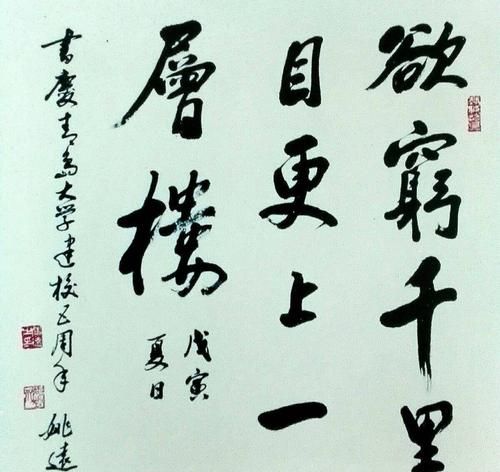 欲窮千里
目更上一
層樓
戊寅
夏日
書慶青島大学建校五周年 姚遠